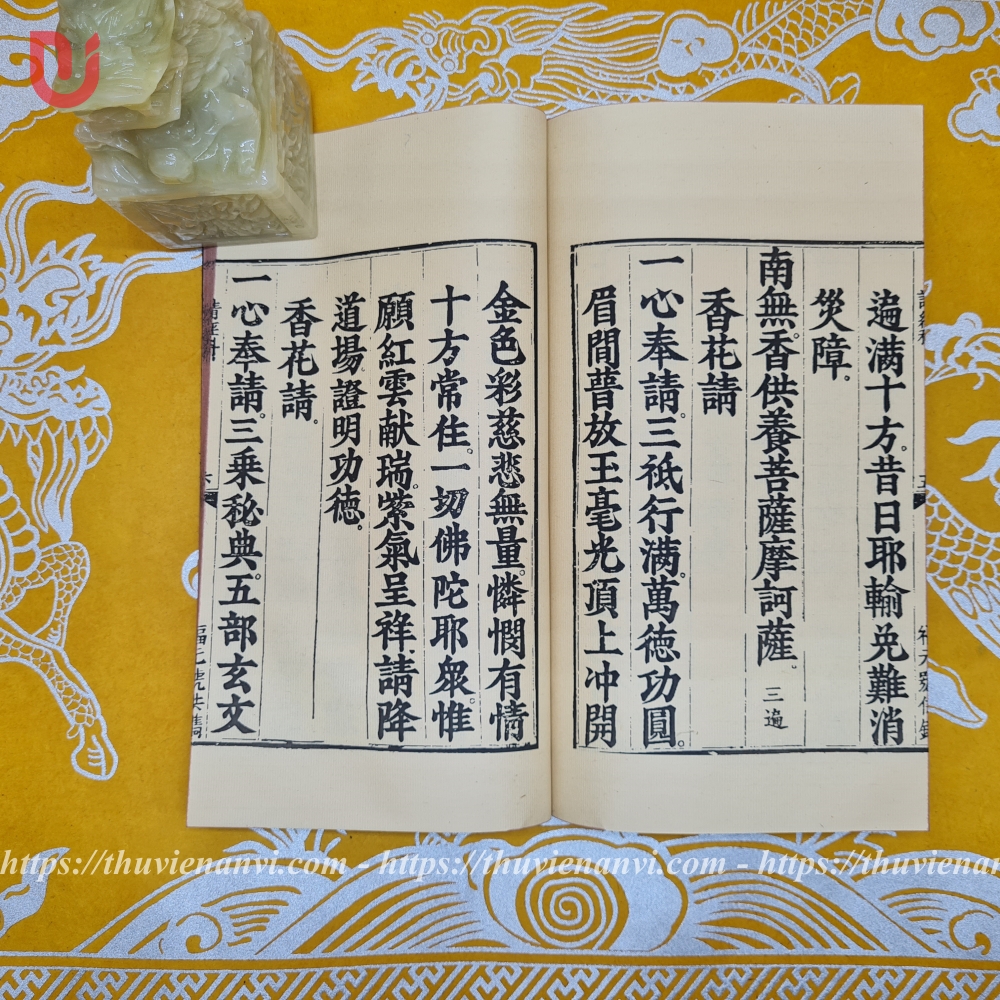 遍滿十方。昔日耶輸免難消
災障。
南無。香供養菩薩摩訶薩。三遍
香花請
一心奉請。三祇行滿。萬德功圓。
眉間普放玉毫光頂上冲開
金色彩慈悲無量。憐憫有情
十方常住。一切佛陀耶眾。惟
願紅雲献瑞。紫氣呈祥。請降
道場。證明功德。
香花請。
一心奉請。三乘秘典。五部玄文
https://thuvienanvi.com - https://thuvienanvi.com - https://thuvienan